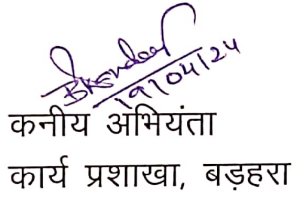 19/04/24
कनीय अभियंता
कार्य प्रशाखा, बड़हरा